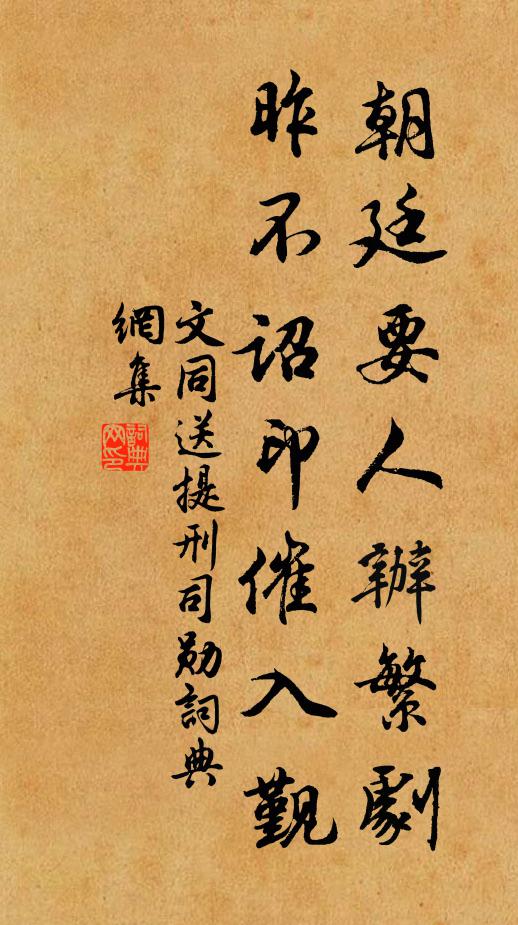 朝廷要人辦繁劇
昨不詔印催入覲
文同送提刑司勛詞典
網集
詞典
網印